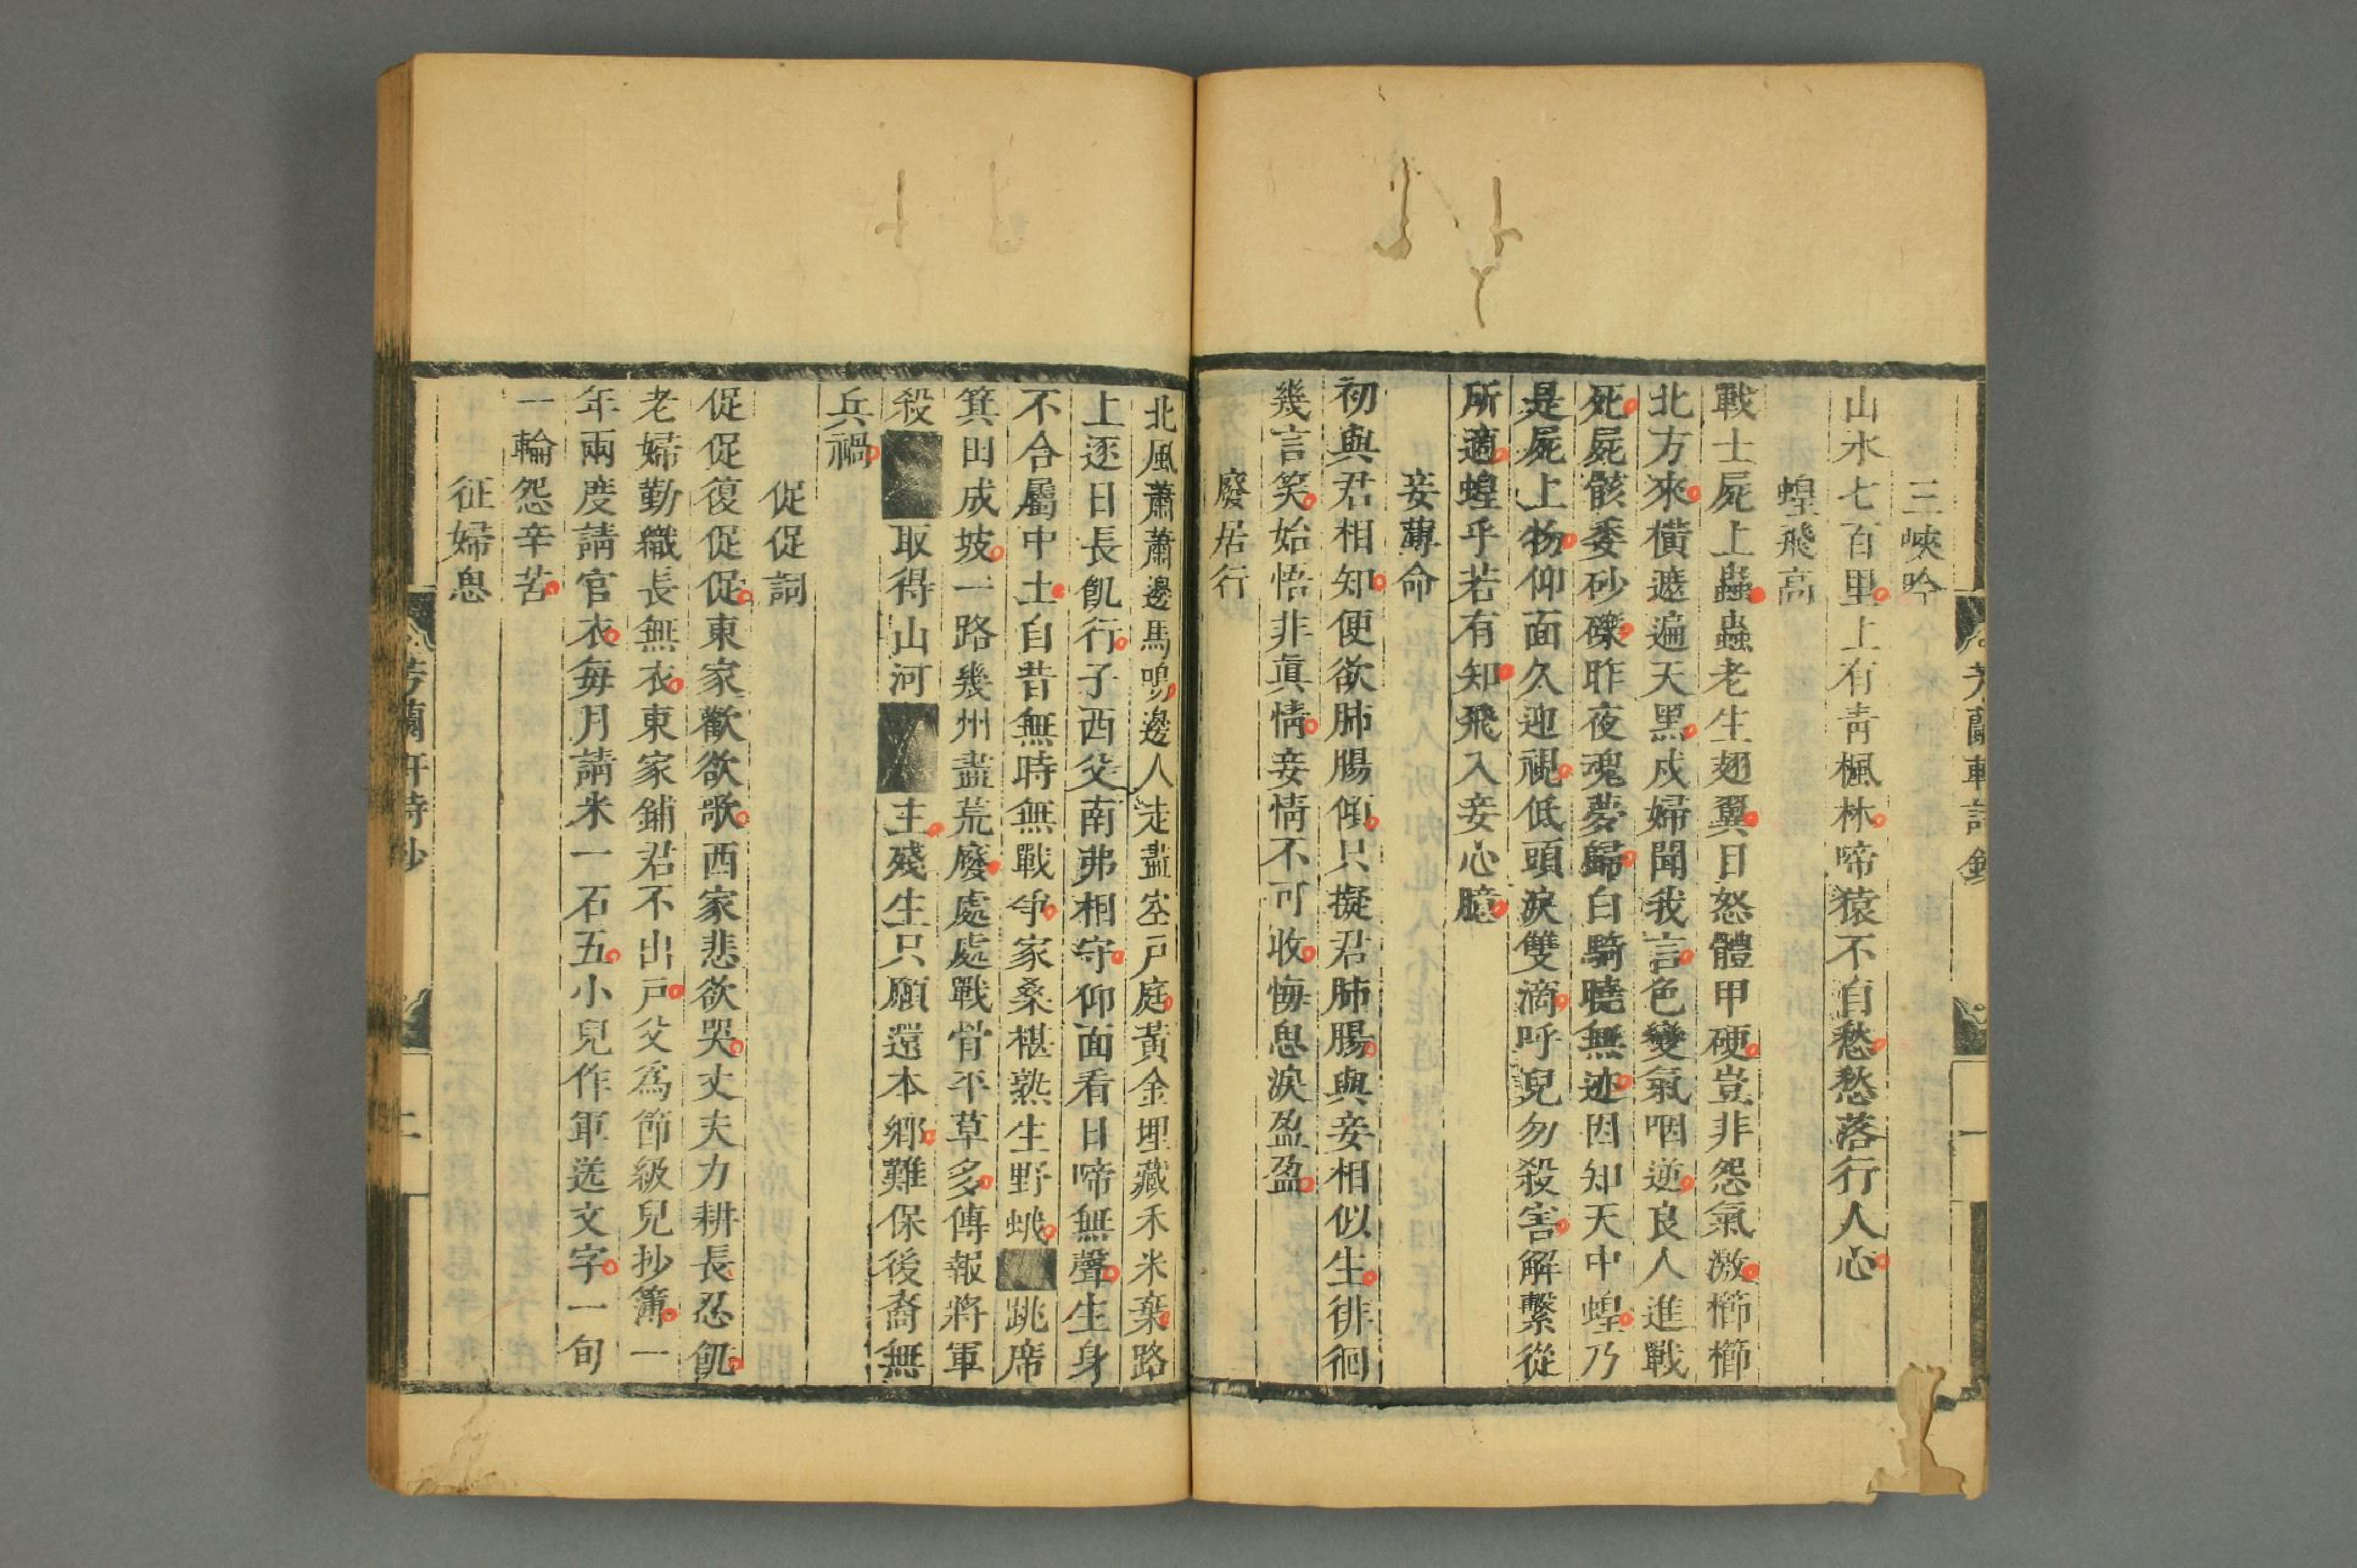 三峽吟
山水七百里上有靑楓林啼猿不自愁愁落行人心
蝗飛高
戰士屍上蟲蟲老生翅翼日怒體甲硬豈非怨氣激櫛櫛
北方來橫遮遍天黑戍婦聞我言色變氣咽逆良人進戰
死屍骸委砂礫昨夜魂夢歸白騎曉無迹因知天中蝗乃
是屍上物仰面久迎視低頭淚雙滴呼兒勿殺害解繫從
所適蝗乎若有知飛入妾心臆
妾薄命
初與君相知便欲肺腸傾只擬君肺腸與妾相似生徘徊
幾言笑始悟非眞情妾情不可收悔思淚盈盈
廢居行
北風蕭蕭邊馬鳴邊人走盡空戶庭黃金埋藏禾米棄路
上逐日長飢行子西父南弗相守仰面看日啼無聲生身
不合屬中土自昔無時無戰爭家桑椹熟生野蛾跳席
箕田成坡一路幾州盡荒廢處處戰骨平草多傳報將軍
殺取得山河主殘生只願還本鄉難保後裔無
兵禍
促促詞
促促復促促東家歡欲歌西家悲欲哭丈夫力耕長忍飢
老婦勤織長無衣東家鋪君不出戶父爲節級兒抄簿一
年兩度請官衣每月請米一石五小兒作軍送文字一旬
一輪怨辛苦
征婦思
芳蘭軒詩鈔
一
芳蘭軒詩鈔
二